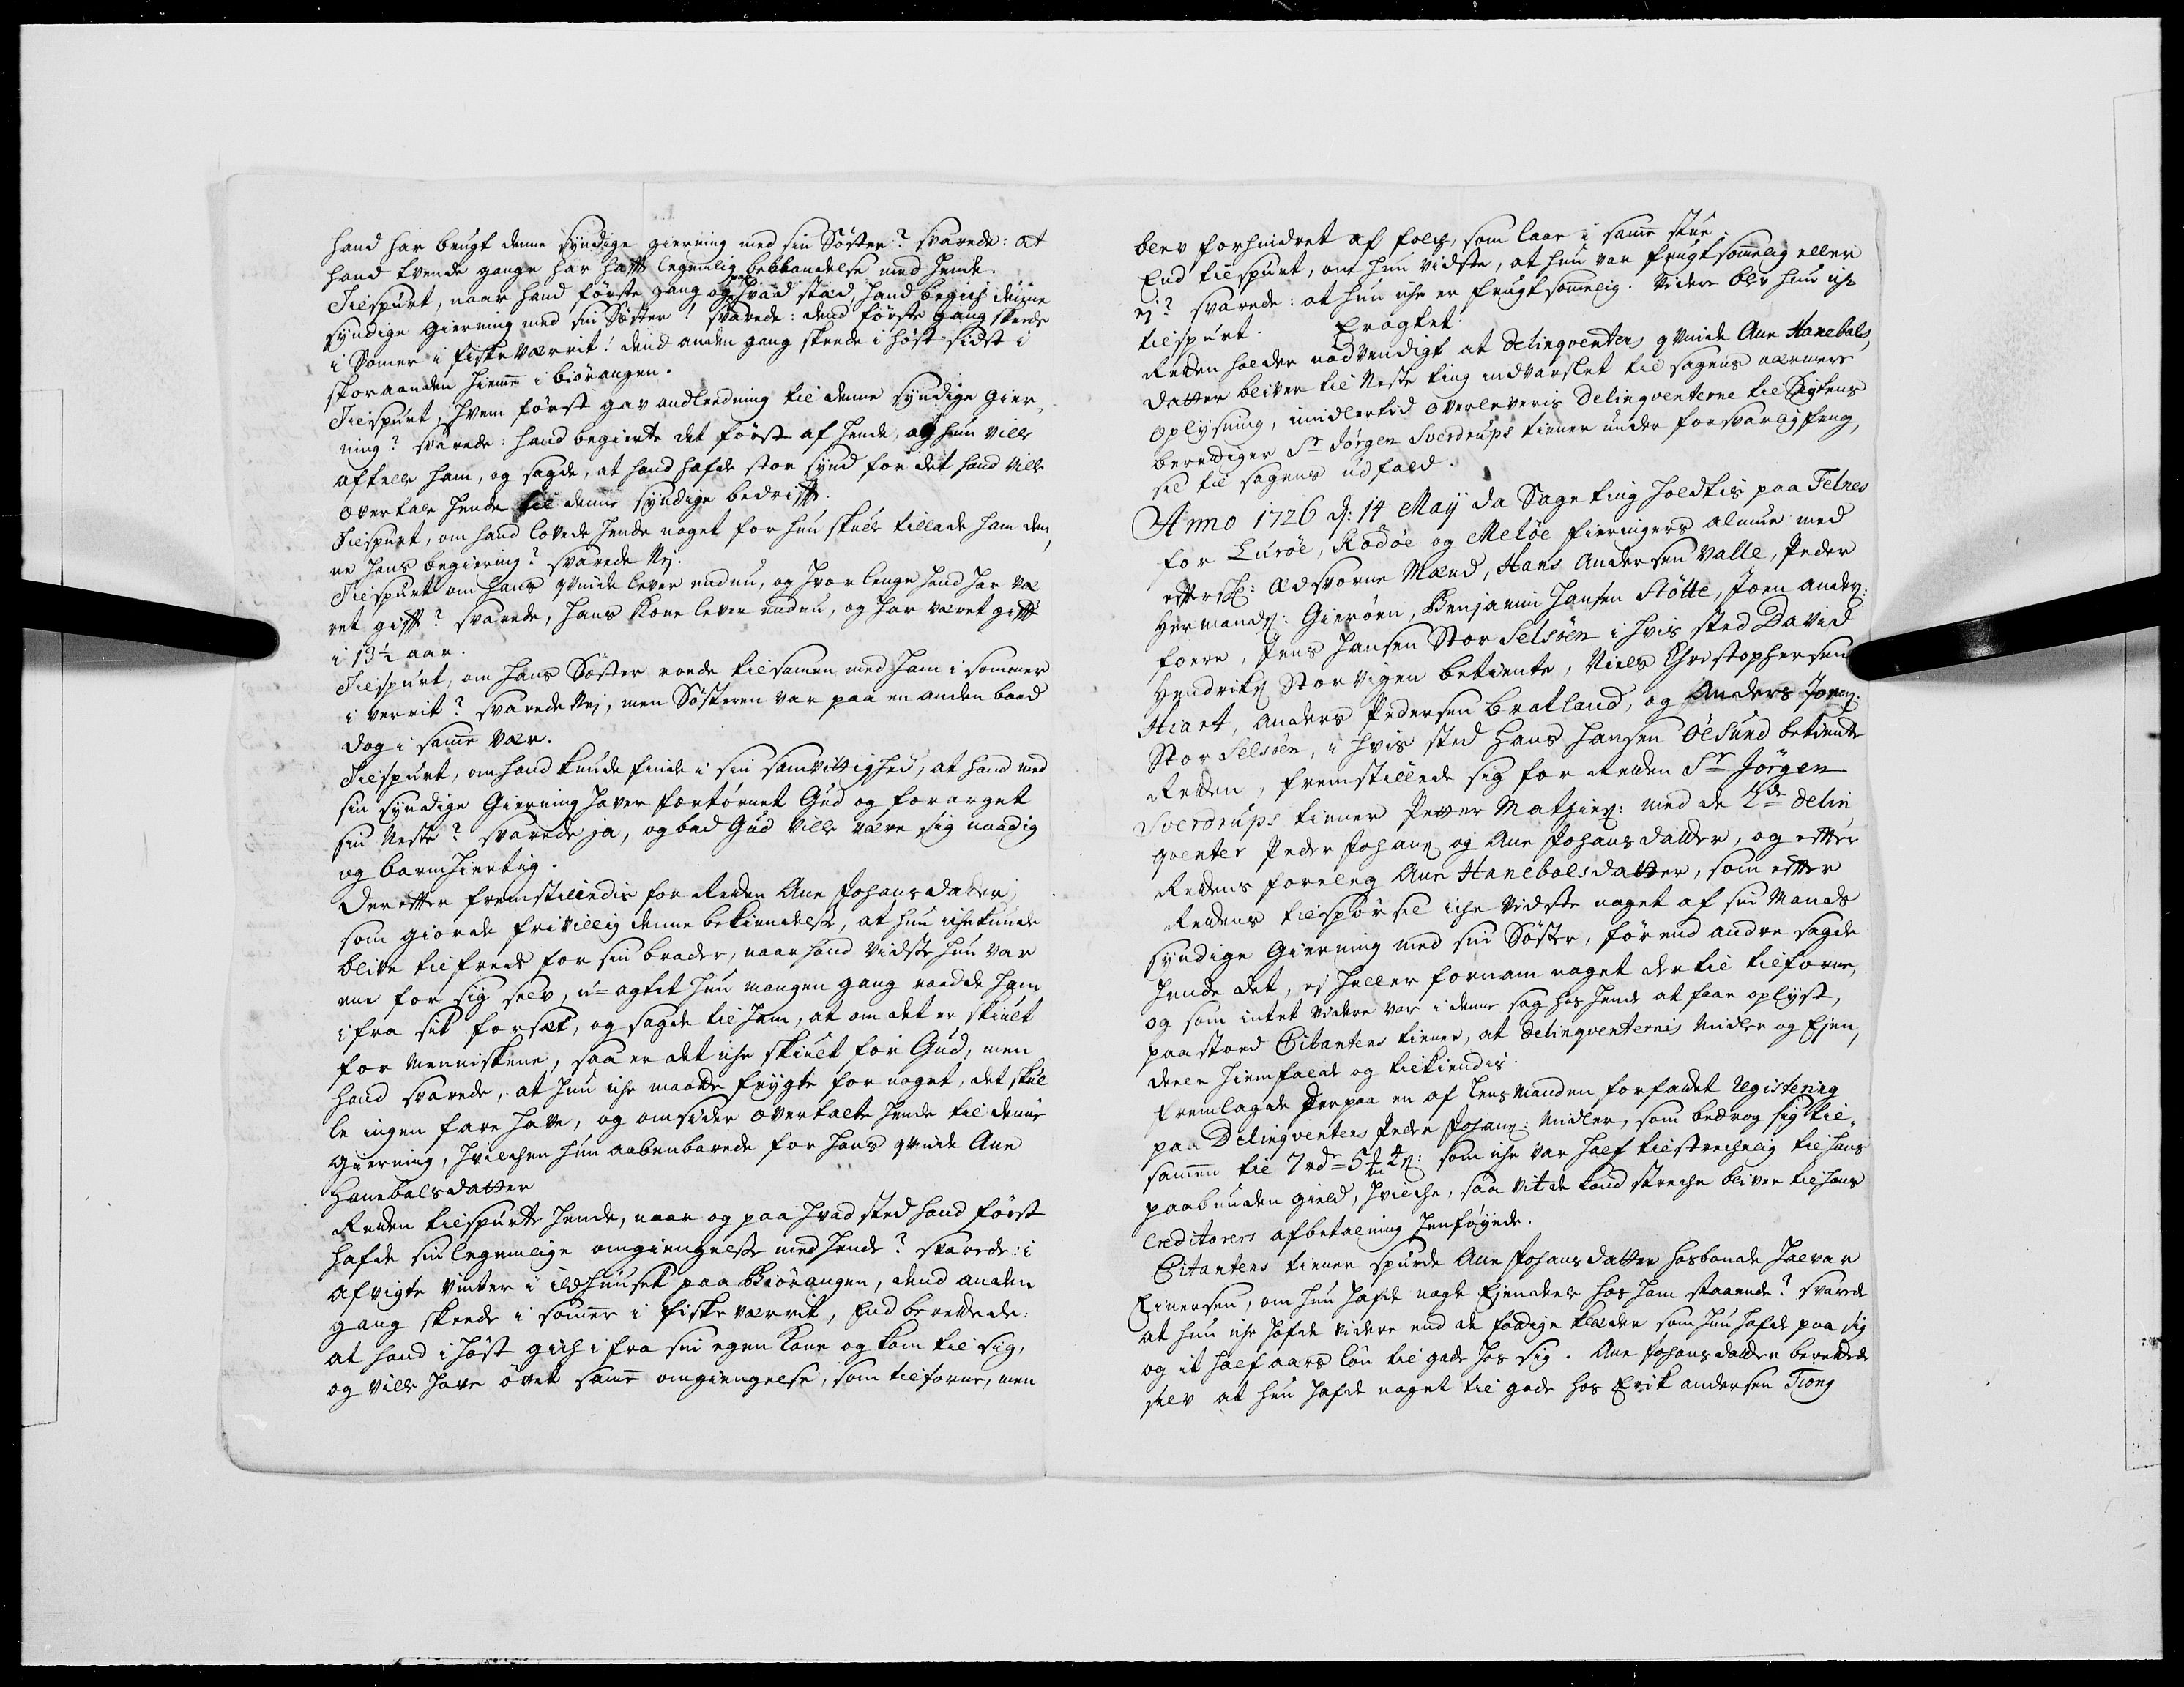 hand har brugt denne syndige gierning med sin Söster? svarede: at
hand tvende gange har hafft legemlig bebblandelse med hende.
Tilspurt, naar hand förste gang og paa hvad stæd, hand begich denne
syndige gierning med sin Söster? svarede: dend förste gang skeede
i Somer i fiskeværrit! dend anden gang skeede i höst sidst i
skoraanden hieme i biörangen.
Tilspurt, hvem först gav andleedning til denne syndige gier-
ning? svarede: hand begierte det först af hende, og hun ville
aftelle ham, og sagde, at hand hafde stor synd for det hand ville
overtale hende til denne syndige bedrifft.
Tilspurt, om hand lovede hende noget for hun skulle tillade ham den,
ne hans begiering? svarede Nej.
Tilspurt om hans qvinde lever endnu, og hvor lenge hand har væ
ret gifft? svarede, hans Kone lever endnu, og har været gifft
i 13½ aar.
Tilspurt, om hans Söster roede tilsamen med ham i sommer
i verrit? svarede Nej, men Sösteren var paa en anden baad
dog i same vær.
Tilspurt, om hand kunde finde i sin samvittighed, at hand med
sin syndige Gierning haver fortörnet Gud og forarget
sin Neste? svarede ja, og bad Gud ville være sig naadig
og barmhiertig.
Der effter fremstillindis for Retten Ane Johansdatter,
som giorde frivillig denne bekiendelse, at hun iche kunde
blive tilfreds for sin broder, naar hand vidste hun var
ene for sig selv, u-agtet hun mangen gang raadde ham
ifra sit forsæt, og sagde til ham, at om det er skiult
for Menniskene, saa er det iche skiult for Gud, men
hand svarede, at hun iche maatte frygte for noget, det skul
le ingen fare have, og omsider overtalte hende til denne
gierning, hvilchen hun aabenbarede for hans qvinde Ane
Hanebalsdatter
Retten tilspurte hende, naar og paa hvad sted hand först
hafde sin legemlige omgiengelse med hende? svarede: i
afvigte vinter i ildhuuset paa Biörangen, dend anden
gang skeede i somer i fiskeværrit, End berettede:
at hand i höst gich ifra sin egen Kone og kom til sig,
og ville have övet same omgiengelse, som tilforne, men
blev forhindret af folch, som laae i same stue.
End tilspurt, om hun vidste, at hun var frugtsomelig eller
ej? svarede: at hun iche er frugtsomelig. Videre blev hun iche
tilspurt. Eragtet.
Retten holder nödvendigt at Delinqventens qvinde Ane Hanebals,
datter bliver til Neste ting indvarslet til sagens nærmere
oplysning, imidlertid overleveris Delinqventerne til Sigtens
berediger Sr Jörgen Sverdrups tiener under forsvarlig feng,
sel til sagens udfald.
Anno 1726 d: 14 Maÿ da Sageting holdtis paa Telnes
for Luröe, Rödöe og Melöe fieringers almue med
effterschr: Ædsvorne Mænd, Hans Andersen Valle, Peder
Hermands: Gieröen, Benjamin Hansen Stötte, Joen Anders:
foere, Jens Hansen Stor Selsöen i hvis sted David
Hendriks Storvigen betiente, Niels Christophersen
Hiart, Anders Pedersen Bratland, og Anders Joens:
Stor Selsöen, i hvis sted Hans Hansen Ölsund betiente
Retten, fremstillede sig for Retten Sr Jörgen
Sverdrups tiener Petter Mathies: med de 2de Delin
qventer Peder Johans og Ane Johansdatter, og effter
Rettens foreleg Ane Hanebalsdatter, som effter
Rettens tilspörsel iche vidste noget af sin Mands
syndige Gierning med sin Söster, förend andre sagde
hende det, ej heller fornam noget dertil tilforne,
og som intet videre var i denne sag hos hende at faae oplyst,
paastoed Citantens tiener, at Delinqventernis Midler og Ejen,
deele hiemfalde og tilkiendis.
Fremlagde Derpaa en af Lensmanden forfattet Registering
paa Delinqventens Peder Johans: Midler, som bedrog sig til-
samen til 7 rdr 5 som iche var half tilstrechelig til hans
paabunden gield, hvilche, saa vit de kand streche bliver til hans
Creditorers afbetalning henföyede.
Citantens tiener spurde Ane Johansdatter hosbonde Halvar
Einersen, om hun hafde nogle Ejendeele hos ham staaende? svarede
at hun iche hafde videre end de fattige klæder som hun hafde paa sig
og it half aars lön til gode hos sig. Ane Johansdatter berettede
selv at hun hafde noget til gode hos Erik Andersen Tiong